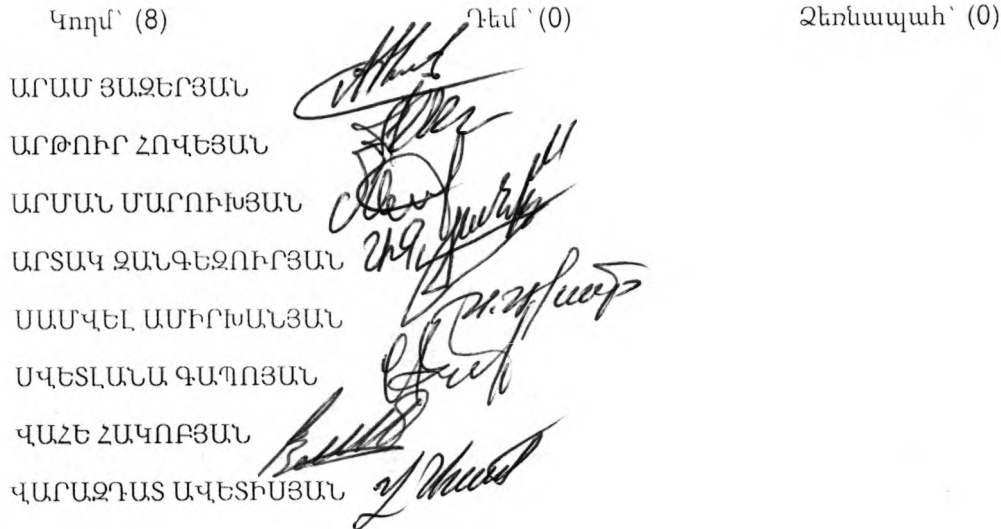 Կողմ՝ (8) Դեմ ՝(0) Ձեռնապահ՝ (0)
ԱՐԱՄ ՅԱԶԵՐՅԱՆ
ԱՐԹՈՒՐ ՀՈՎԵՅԱՆ
ԱՐՄԱՆ ՄԱՐՈՒԽՅԱՆ
ԱՐՏԱԿ ԶԱՆԳԵԶՈՒՐՅԱՆ
ՍԱՄՎԵԼ ԱՄԻՐԽԱՆՅԱՆ
ՍՎԵՏԼԱՆԱ ԳԱՊՈՅԱՆ
ՎԱՀԵ ՀԱԿՈԲՅԱՆ
ՎԱՐԱԶԴԱՏ ԱՎԵՏԻՍՅԱՆ